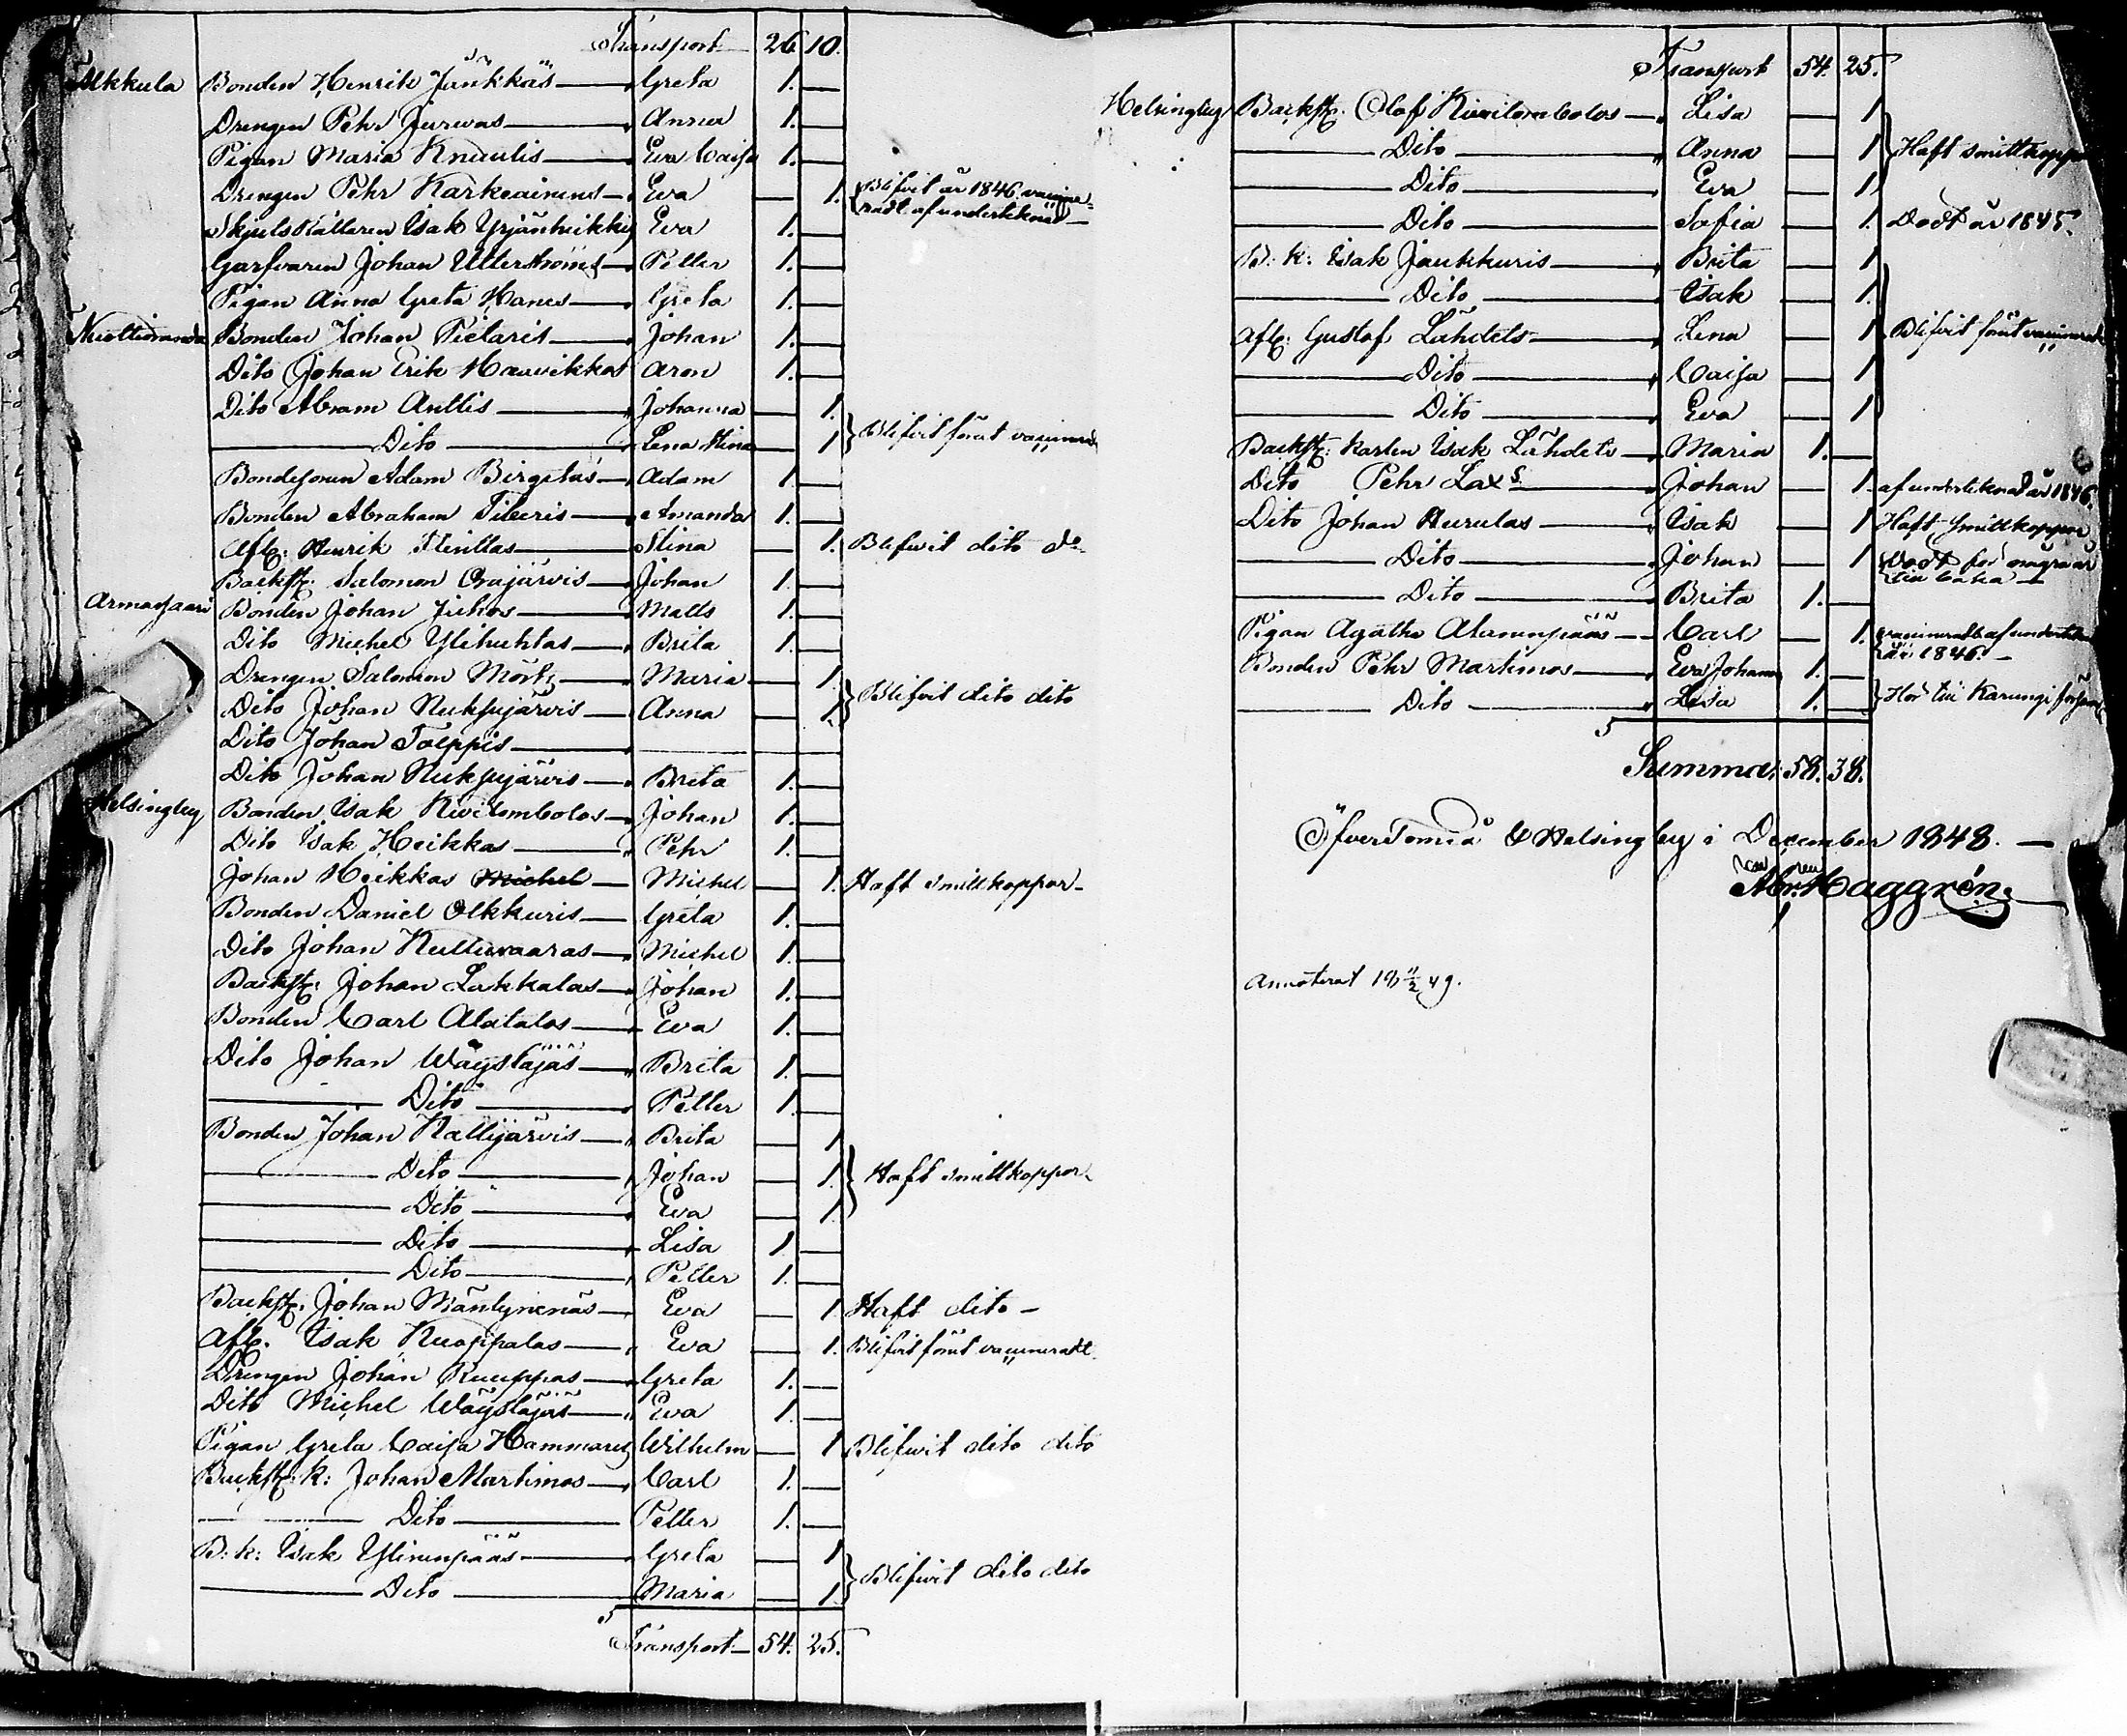 Transport 26 10.
Alkkula Bonden Henrik Junkkäs Greta 1. —
Drengen Pehr Jurwas Anna 1. —
Pigan Maria Knuutis Eva Caijsa 1. —
Drengen Pehr Karkeainens Eva — 1. Blifvit år 1846 vaccine-
radt af underteknad
Skjutshållaren Isak Yrjänheikkis Eva 1. —
Garfvaren Johan Utterströms Petter 1. —
Pigan Anna Greta Hanes Greta 1. —
Nuottioranda Bonden Johan Pietaris Johan 1. —
Dito Johan Erik Haavikkos Aron 1. —
Dito Abram Anttis Johanna — 1.
Dito Lena Stina — 1 Blifvit förut vaccinerad
Bondesonen Adam Birgitas Adam 1 —
Bonden Abraham Tiberis Amanda 1. —
Afl: Henrik Stina — 1. Blefwit dito do
Backst: Salomon Orajärvis Johan 1. —
Armasjaari Bonden Johan Juhos Matts 1. —
Dito Michel Ylihuhtas Brita 1. —
Drengen Salomon Mörts Maria — 1.
Dito Johan Rukojärvis Anna — 1. Blifvit dito dito
Dito Johan Toeppis — —
Dito Johan Rukojärvis Brita 1. —
Helsingby Bonden Isak Kivilombolos Johan 1. —
Dito Isak Heikkas Pehr 1. —
Johan Heikkas Michel Michel — 1. Haft smittkoppor
Bonden Daniel Olkkuris Greta 1. —
Dito Johan Kultivaaras Michel 1. —
Backst: Johan Lakkalas Johan 1. —
Bonden Carl Alatalos Eva 1. —
Dito Johan Wäystäjäs Brita 1. —
Dito Petter 1. —
Bonden Johan Kallijärvis Brita — 1
Dito Johan — 1. Haft smittkoppor
Dito Eva — 1.
Dito Lisa 1 —
Dito Petter 1. —
Backst: Johan Mäntynenäs Eva — 1 Haft dito —
Afl. Isak Kuoppalas Eva — 1. Blifvit förut vaccineradt
Drengen Johan Ruuppas Greta 1. —
Dito Michel Wäystäjäs Eva 1. —
Pigan Greta Caijsa Hammares Wilhelm — 1 Blifwit dito dito
Backst: k: Johan Martimos Carl 1. —
Dito Petter 1. —
B: k: Isak Ylinenpääs Greta — 1
Dito Maria — 1. Blifwit dito dito
Transport 54. 25.
Transport 54. 25.
Helsingby Backst: Olof Kivilombolos Lisa — 1
Dito Anna — 1 Haft smittkoppor
Dito Eva — 1
Dito Sofia — 1. Dödt år 1845.
B: k: Isak Jaukkuris Brita — 1
Dito Isak — 1.
Afl: Gustaf Lähdets Lena — 1 Blifvit förut vaccinerad
Dito Caijsa — 1
Dito Eva — 1
Backst: karlen Isak Lähdets Maria 1. —
Dito Pehr Lax s. Johan — 1. af underteknad år 1846.
Dito Johan Hurulas Isak — 1 Haft smittkoppor
Dito Johan — 1 Dödt för några år
tillbaka —
Dito Brita 1. —
Pigan Agatha Alanenpääs Carl — 1. vaccineradt af undertekn
år 1846. —
Bonden Pehr Martimos Eva Johanna 1. —
Dito Lisa 1. — Hör till Karungi försam
Summa: 58. 38.
ÖfverTorneå & Helsingby i December 1848. —
Abr. Haggrén.
Annoterat 18 11/2 49.